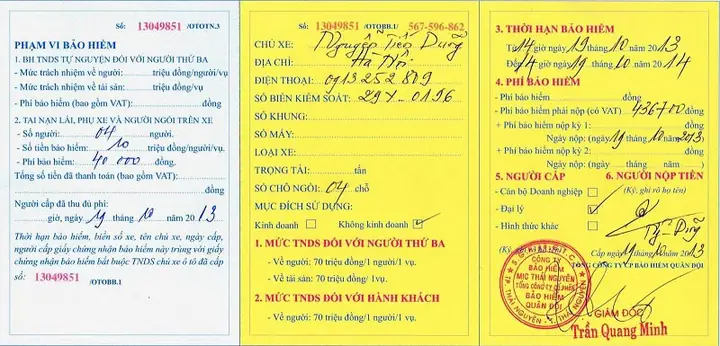 Số: 13049851 /OTOTN.3
PHẠM VI BẢO HIỂM
1. BH TNDS TỰ NGUYỆN ĐỐI VỚI NGƯỜI THỨ BA
- Mức trách nhiệm về người: triệu đồng/người/vụ
- Mức trách nhiệm về tài sản: triệu đồng/vụ
- Phí bảo hiểm (bao gồm VAT): đồng
2. TAI NẠN LÁI, PHỤ XE VÀ NGƯỜI NGỒI TRÊN XE
- Số người: 04 người.
- Số tiền bảo hiểm: 10 triệu đồng/người/vụ.
- Phí bảo hiểm: 40 000 đồng.
Tổng số tiền đã thanh toán (bao gồm VAT):
đồng
Người cấp đã thu đủ phí:
giờ, ngày 19 tháng 10 năm 2013
Thời hạn bảo hiểm, biển số xe, tên chủ xe, ngày cấp,
người cấp giấy chứng nhận bảo hiểm này trùng với giấy
chứng nhận bảo hiểm bắt buộc TNDS chủ xe ô tô đã cấp
số: 13049851 /OTOBB.1
Số: 13049851 /OTOBB.1/ 567-596-862
CHỦ XE: Nguyễn Tiến Dũng
ĐỊA CHỈ: Hà Nội
ĐIỆN THOẠI: 0913252809
SỐ BIỂN KIỂM SOÁT: 29X-0196
SỐ KHUNG:
SỐ MÁY:
LOẠI XE:
TRỌNG TẢI: tấn
SỐ CHỖ NGỒI: 04 chỗ
MỤC ĐÍCH SỬ DỤNG:
Kinh doanh Không kinh doanh
1. MỨC TNDS ĐỐI VỚI NGƯỜI THỨ BA
- Về người: 70 triệu đồng/1 người/1 vụ.
- Về tài sản: 70 triệu đồng/ 1vụ.
2. MỨC TNDS ĐỐI VỚI HÀNH KHÁCH
- Về người: 70 triệu đồng/1 người/1 vụ.
3. THỜI HẠN BẢO HIỂM
Từ 14 giờ ngày 19 tháng 10 năm 2013
Đến 14 giờ ngày 19 tháng 10 năm 2014
4. PHÍ BẢO HIỂM
- Phí bảo hiểm đồng
- Phí bảo hiểm phải nộp (có VAT) 436700 đồng
+ Phí bảo hiểm nộp kỳ 1: đồng
Ngày nộp: (ngày 19 tháng 10 năm 2013)
+ Phí bảo hiểm nộp kỳ 2: đồng
Ngày nộp: (ngày tháng năm )
5. NGƯỜI CẤP 6. NGƯỜI NỘP TIỀN
- Cán bộ Doanh nghiệp (Ký, ghi rõ họ tên)
- Đại lý
- Hình thức khác
Cấp ngày 19/10/2013
TỔNG CÔNG TY CP BẢO HIỂM QUÂN ĐỘI
CÔNG TY
BẢO HIỂM
MIC THÁI NGUYÊN
TỔNG CÔNG TY CỔ PHẦN
BẢO HIỂM
QUÂN ĐỘI
TP. THÁI NGUYÊN - T. THÁI NGUYÊN
GIÁM ĐỐC
Trần Quang Minh